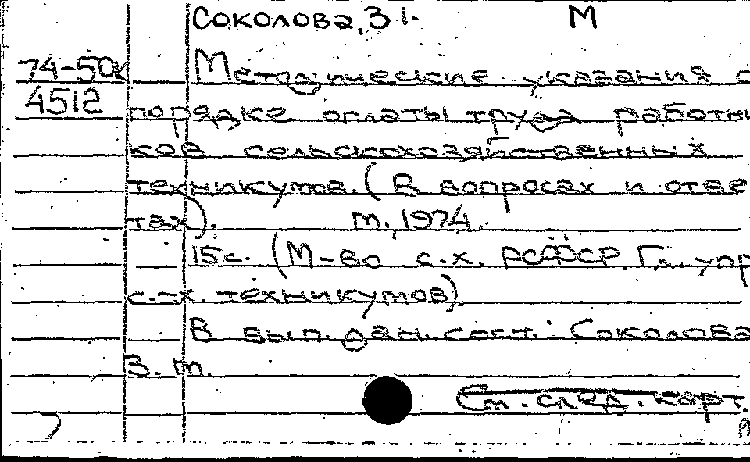 Соколова, З М
74-50к Методические указания о
4512 порядке оплаты труда работни
ков сельскохозяйственных
техникумов. (В вопросах и отве
тах). м. 1974.
15с. (М-во с.х. РСФСР. Гл. упр
с.-х. техникумов)
В вып. дан. сост.: Соколова
З. м.
См. след. карт.